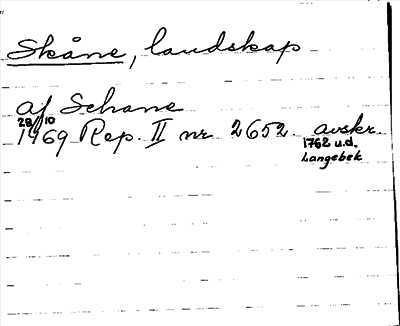 Skåne, landskap
af Schane
28/10
1469 Rep. II nr 2652. avskr.
1762 u.d.
Langebek